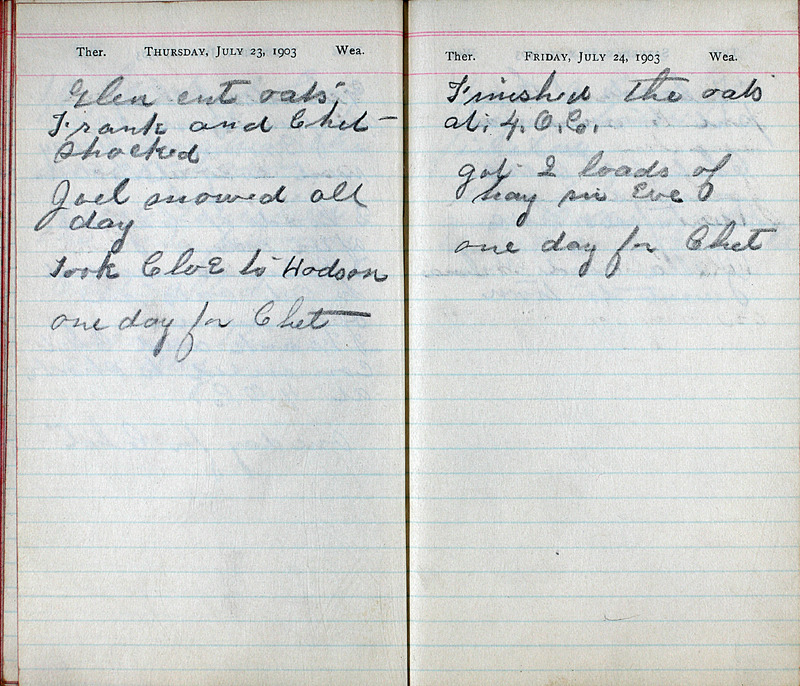 Ther. THURSDAY, JULY 23, 1903 Wea.
Glen cut oats,
Frank and Chet —
Shocked
Joel mowed all
day
Took CloE to Hodson
one day for Chet
Ther. FRIDAY, JULY 24, 1903 Wea.
Finished the oats
at 4. O.C.
got 2 loads of
hay in Eve
one day for Chet